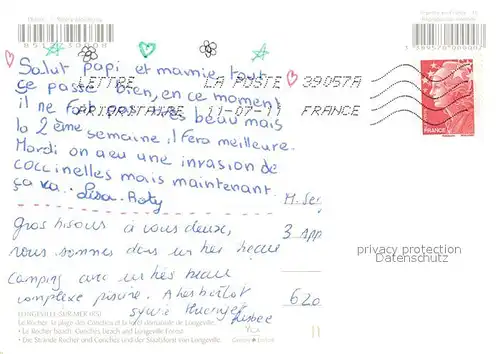 Salut papi et mamie, tout
ce passe bien, en ce moment
il ne fait pas très beau mais
la 2ème semaine, il fera meilleure.
Mardi on a eu une invasion de
coccinelles mais maintenant
ça va. Lisa-
LETTRE LA POSTE 39057A
PRIORITAIRE 11-07-11 FRANCE
FRANCE
Gros bisous à vous deux,
nous sommes dans un très beau
camping avec un très beau
complexe piscine. A très bientôt
Sylvie
M.
3 App
620
privacy protection
Datenschutz
LONGEVILLE-SUR-MER (85)
Le Rocher, la plage des Conches et la forêt domaniale de Longeville.
• Le Rocher beach, Conches beach and Longeville Forest
• Die Strände Rocher und Conches und der Staatsforst von Longeville.